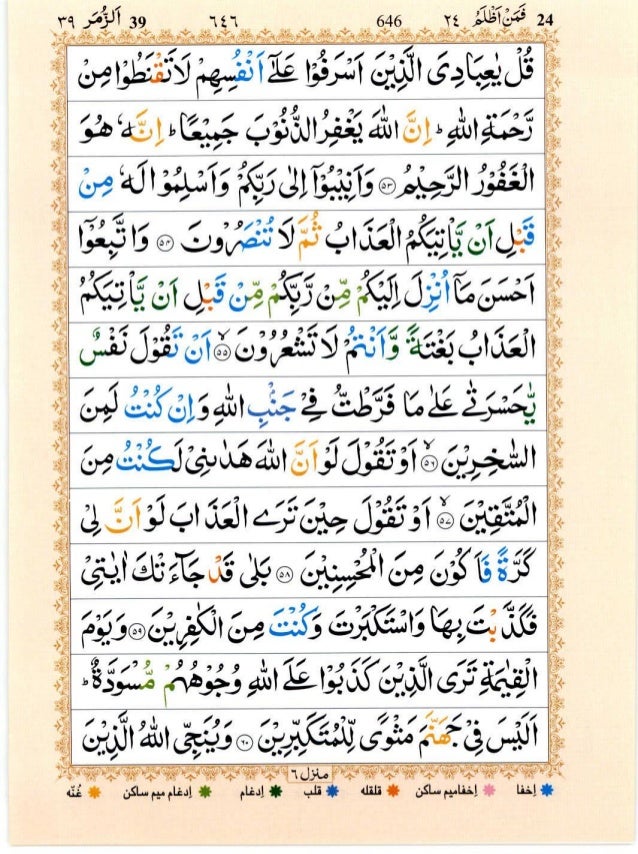 24 فَمَنْ اَظْلَمُ ٢٤ 646 ٦٤٦ 39 اَلزُّمَر ٣٩
قُلْ يٰعِبَادِىَ الَّذِيْنَ اَسْرَفُوْا عَلٰٓى اَنْفُسِهِمْ لَا تَقْنَطُوْا مِنْ
رَّحْمَةِ اللّٰهِ ؕ اِنَّ اللّٰهَ يَغْفِرُ الذُّنُوْبَ جَمِيْعًا ؕ اِنَّهٗ هُوَ
الْغَفُوْرُ الرَّحِيْمُ ﴿۵۳﴾ وَاَنِيْبُوْۤا اِلٰى رَبِّكُمْ وَاَسْلِمُوْا لَهٗ مِنْ
قَبْلِ اَنْ يَّاْتِيَكُمُ الْعَذَابُ ثُمَّ لَا تُنْصَرُوْنَ ﴿۵۴﴾ وَاتَّبِعُوْۤا
اَحْسَنَ مَاۤ اُنْزِلَ اِلَيْكُمْ مِّنْ رَّبِّكُمْ مِّنْ قَبْلِ اَنْ يَّاْتِيَكُمُ
الْعَذَابُ بَغْتَةً وَّاَنْتُمْ لَا تَشْعُرُوْنَ ۙ﴿۵۵﴾ اَنْ تَقُوْلَ نَفْسٌ
يّٰحَسْرَتٰى عَلٰى مَا فَرَّطْتُّ فِىْ جَنْۢبِ اللّٰهِ وَاِنْ كُنْتُ لَمِنَ
السّٰخِرِيْنَ ۙ﴿۵۶﴾ اَوْ تَقُوْلَ لَوْ اَنَّ اللّٰهَ هَدٰٮنِىْ لَكُنْتُ مِنَ
الْمُتَّقِيْنَ ۙ﴿۵۷﴾ اَوْ تَقُوْلَ حِيْنَ تَرَى الْعَذَابَ لَوْ اَنَّ لِىْ
كَرَّةً فَاَكُوْنَ مِنَ الْمُحْسِنِيْنَ ﴿۵۸﴾ بَلٰى قَدْ جَآءَتْكَ اٰيٰتِىْ
فَكَذَّبْتَ بِهَا وَاسْتَكْبَرْتَ وَكُنْتَ مِنَ الْكٰفِرِيْنَ ﴿۵۹﴾ وَيَوْمَ
الْقِيٰمَةِ تَرَى الَّذِيْنَ كَذَبُوْا عَلَى اللّٰهِ وُجُوْهُهُمْ مُّسْوَدَّةٌ ؕ
اَلَيْسَ فِىْ جَهَنَّمَ مَثْوًى لِّلْمُتَكَبِّرِيْنَ ﴿۶۰﴾ وَيُنَجِّى اللّٰهُ الَّذِيْنَ
منزل ٦
اِخفا اِخفامیم ساکن قلقله قلب اِدغام اِدغام میم ساکن غُنّه